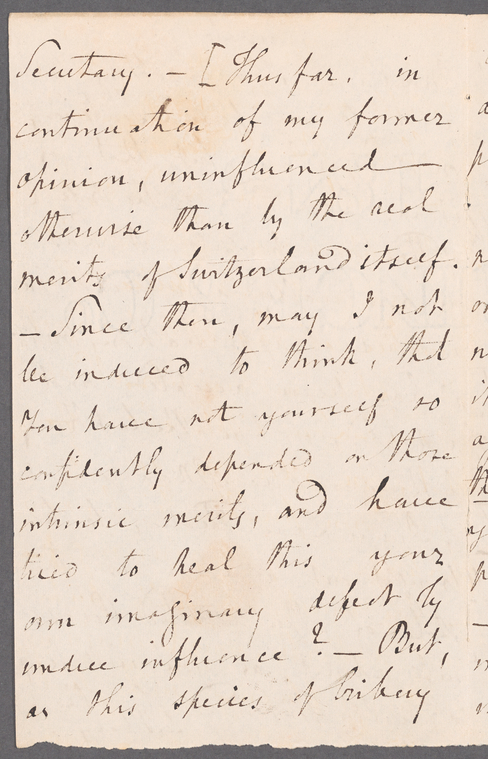 Secretary. – [Thus far, in
continuation of my former
opinion, uninfluenced
otherwise than by the real
merits of Switzerland itself.
– Since then, may I not
be induced to think, that
You have not yourself so
confidently depended on those
intrinsic merits, and have
tried to heal this your
own imaginary defect by
undue influence? – But,
as this species of bribery